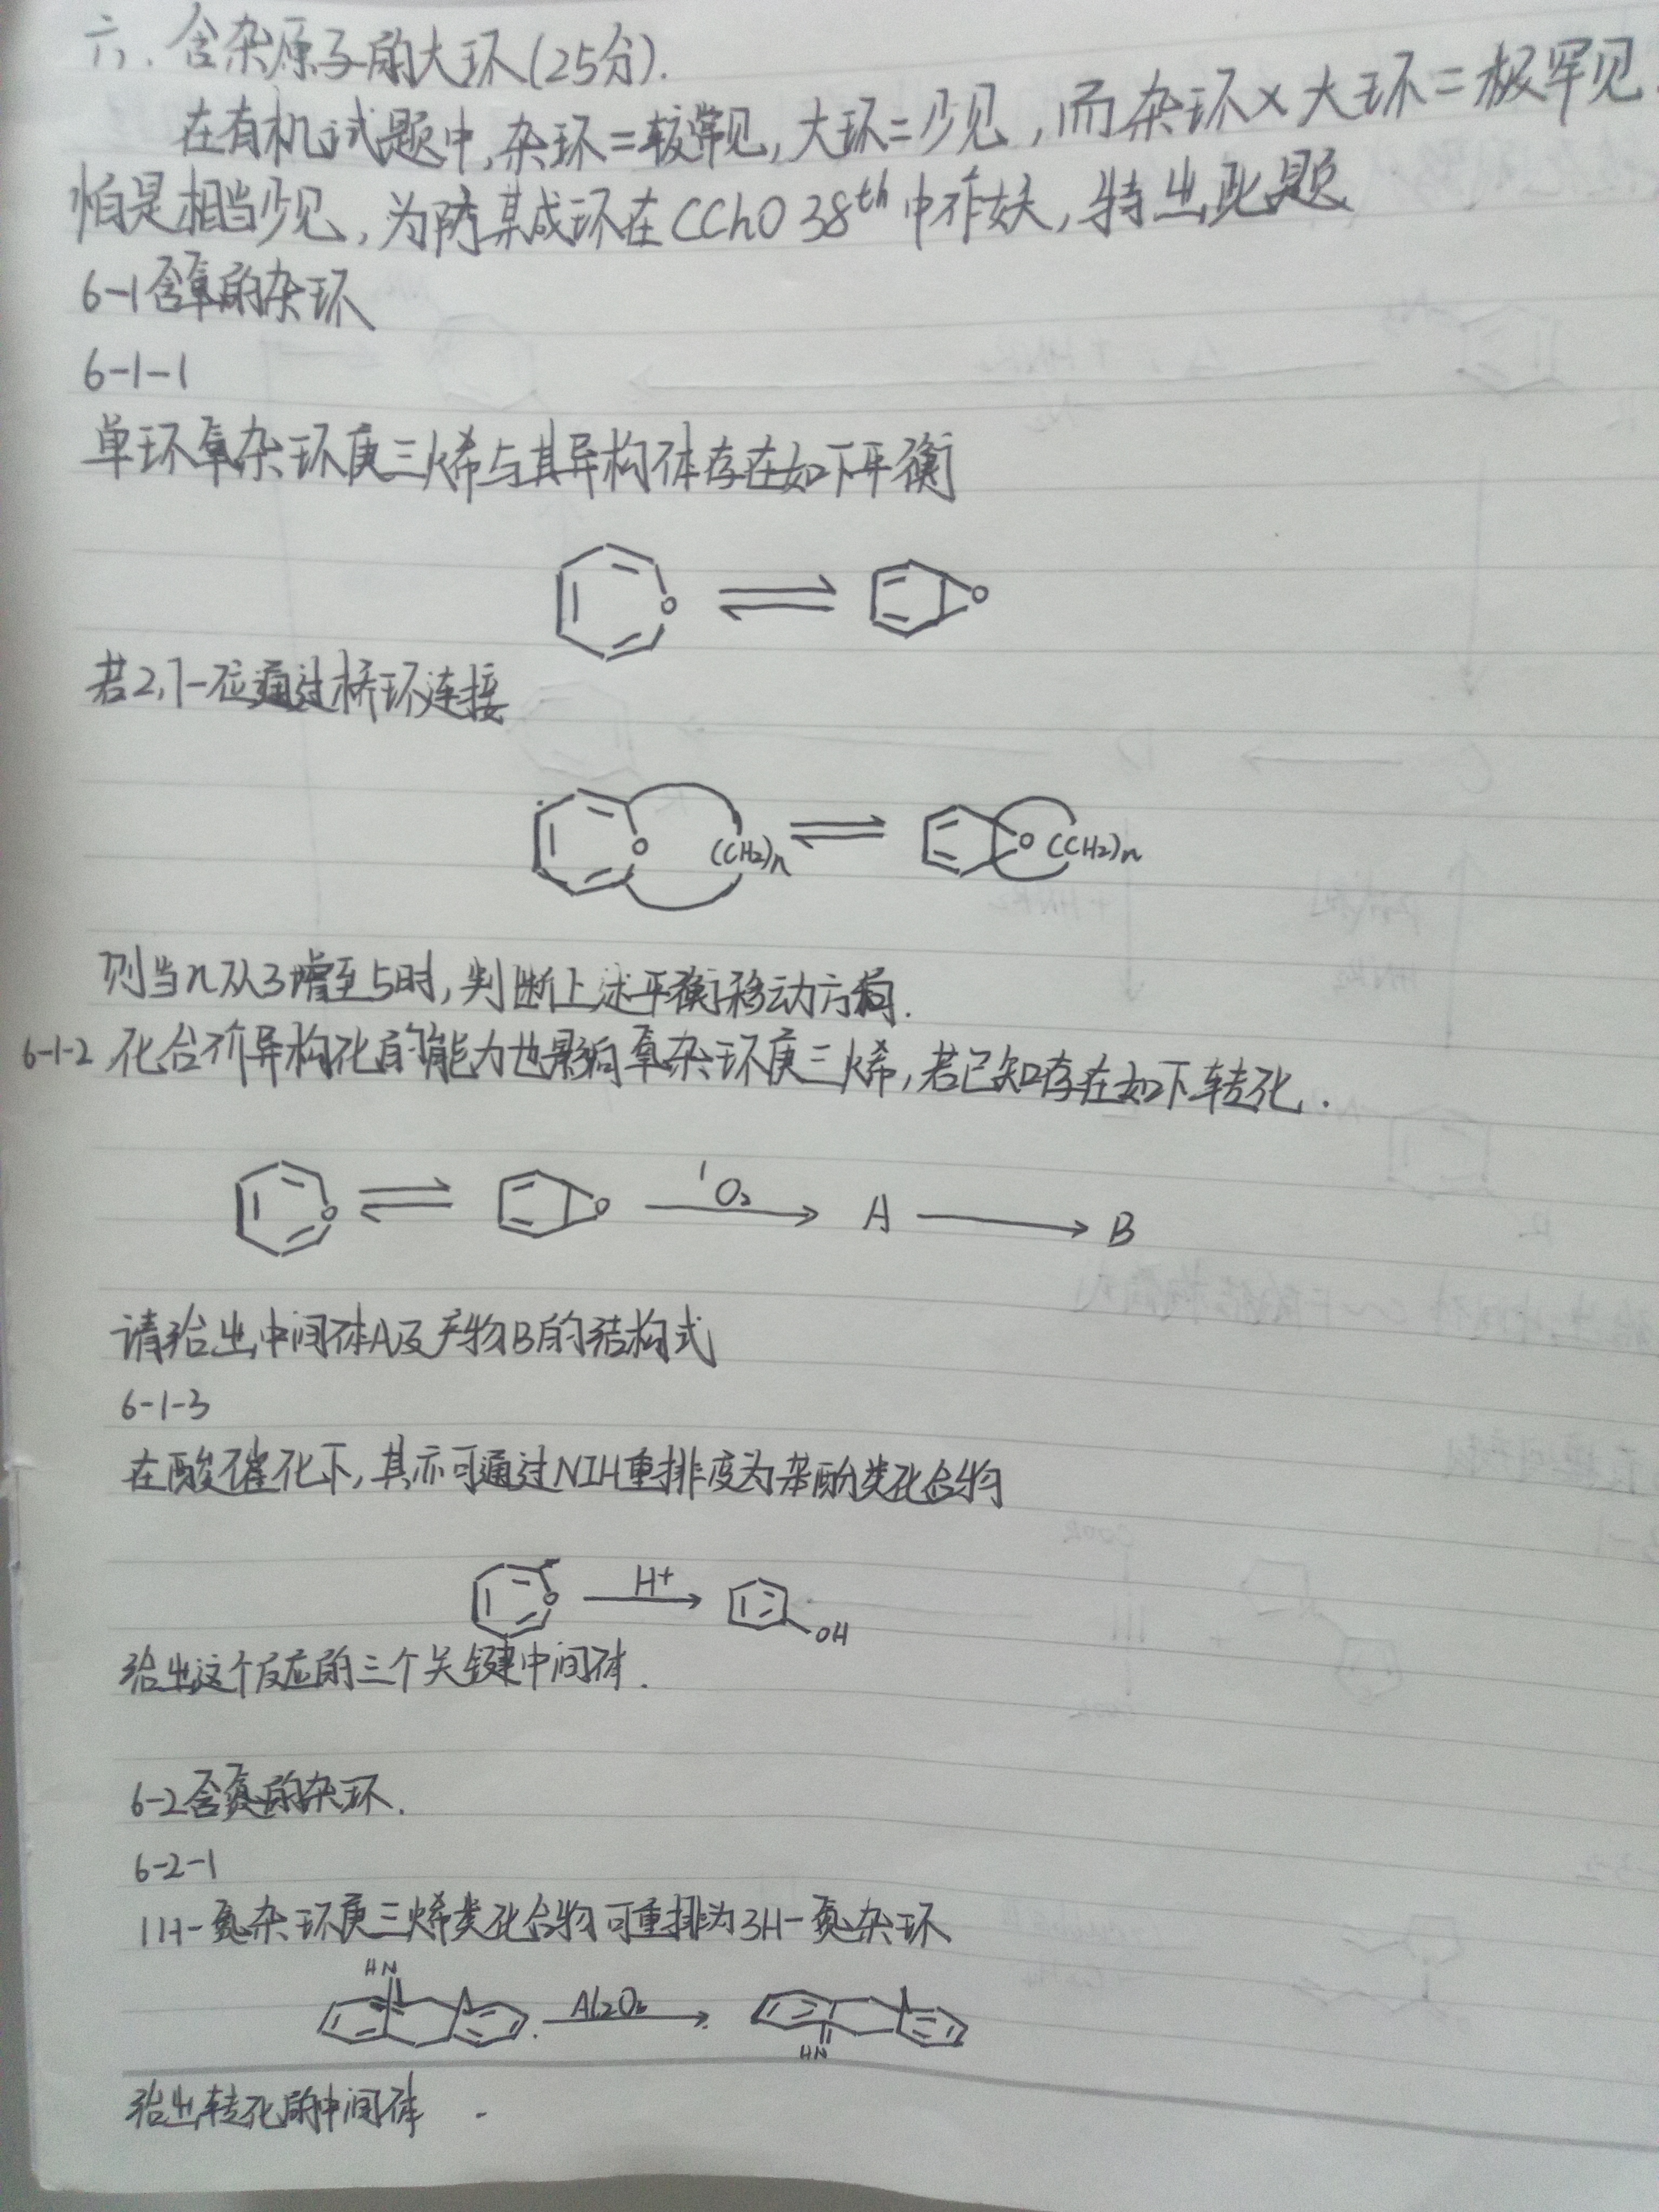 六、含杂原子的大环(25分).
在有机试题中,杂环=较常见,大环=少见,而杂环×大环=极罕见.
怕是相当少见,为防某成环在CChO 38th中作妖,特出此题
6-1含氧的杂环
6-1-1
单环氧杂环庚三烯与其异构体存在如下平衡
O O
若2,7-位通过桥环连接
O (CH2)n O (CH2)n
则当n从3增至5时,判断上述平衡移动方向.
6-1-2 化合价异构化的能力也影响氧杂环庚三烯,若已知存在如下转化.
O O ¹O₂ A B
请给出中间体A及产物B的结构式
6-1-3
在酸催化下,其亦可通过NIH重排变为苯酚类化合物
O H+ OH
给出这个反应的三个关键中间体.
6-2含氮的杂环.
6-2-1
1H-氮杂环庚三烯类化合物可重排为3H-氮杂环
HN Al2O3 HN
给出转化的中间体.